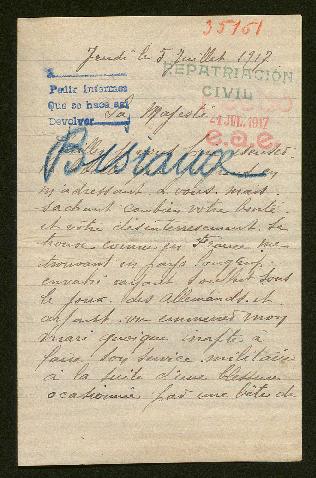 35151
Jeudi le 5 Juillet 1917
REPATRIACIÓN
CIVIL
A
Pedir informes
Que se haga así
Devolver
Sa Majesté
JUL. 1917
e.a.e.
m'adressant a vous mais
sachant combien votre bonté
et votre désinterressement se
trouve connue en France me
trouvant en pays
envahi ayant souffert sous
le joug des Allemands et
ayant vu emmener mon
mari quoique inapte a
faire son service militaire
à la suite d'une blessure
ocasionnée par une bête de